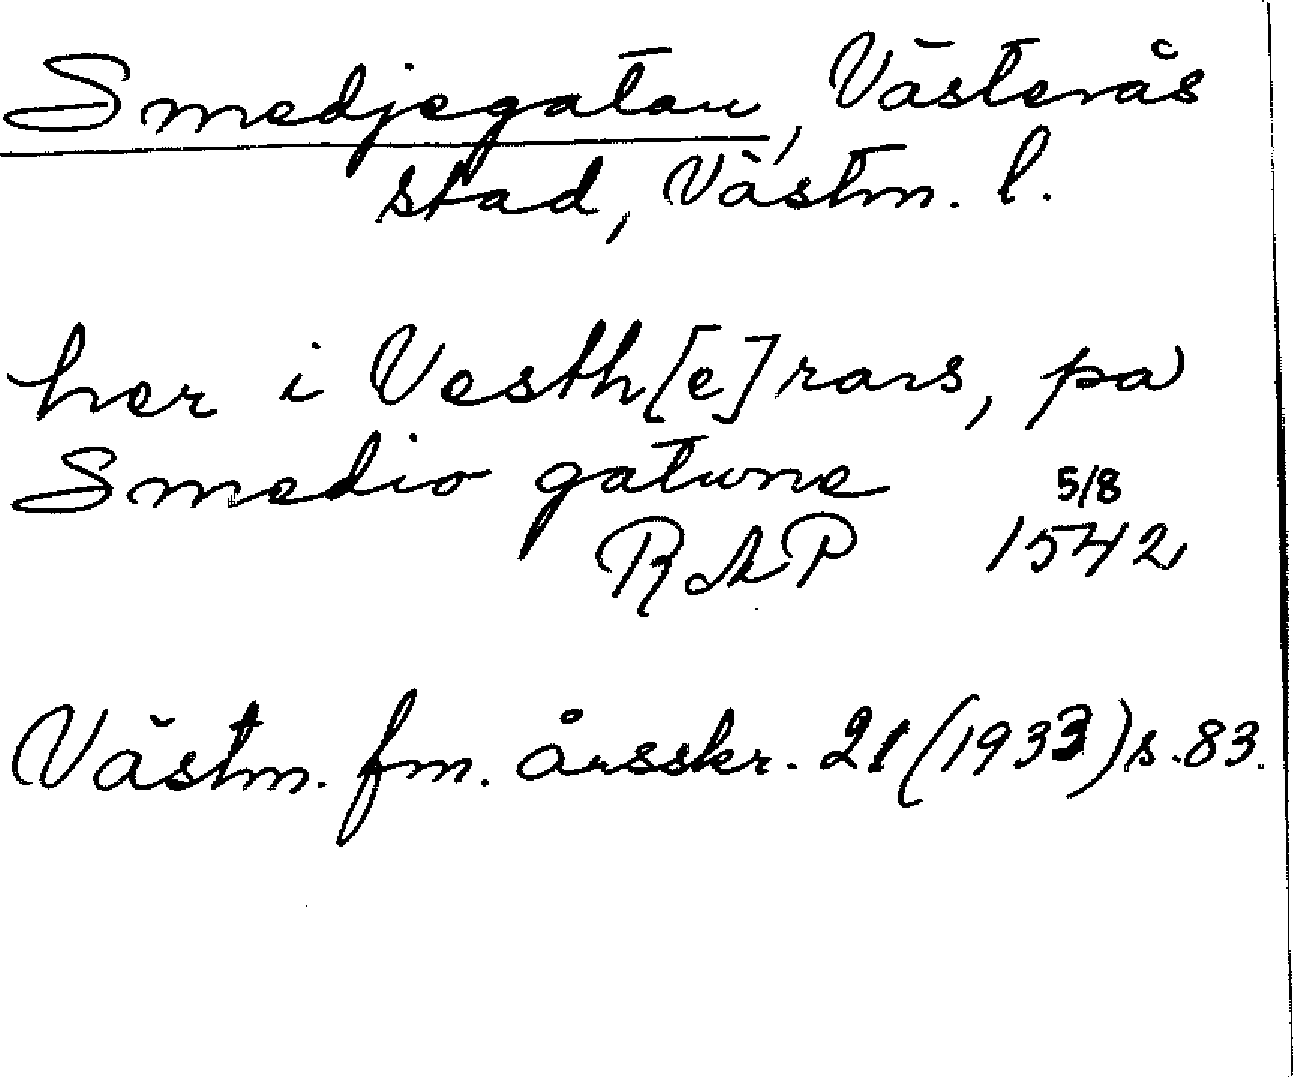 Smedjegatan, Västerås
stad, Västm. l.
her i Vesth[e]rars, pa
Smedio gatune 5/8
RAP 1542
Västm. fm. årsskr. 21 (1933) s. 83.